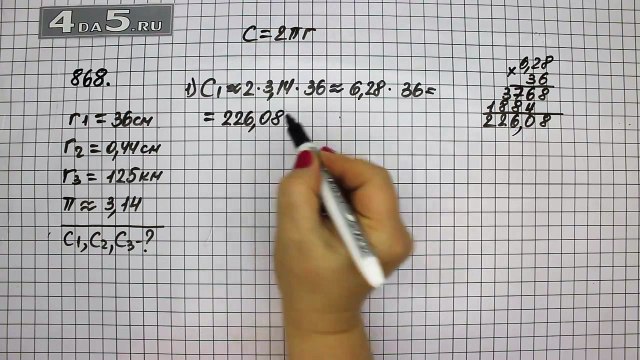 4DA5.RU
C = 2πr
868.
r1 = 36 см
r2 = 0,44 см
r3 = 125 км
π ≈ 3,14
C1, C2, C3 - ?
1) C1 ≈ 2 · 3,14 · 36 ≈ 6,28 · 36 =
= 226,08
6,28
× 36
3768
1884
226,08